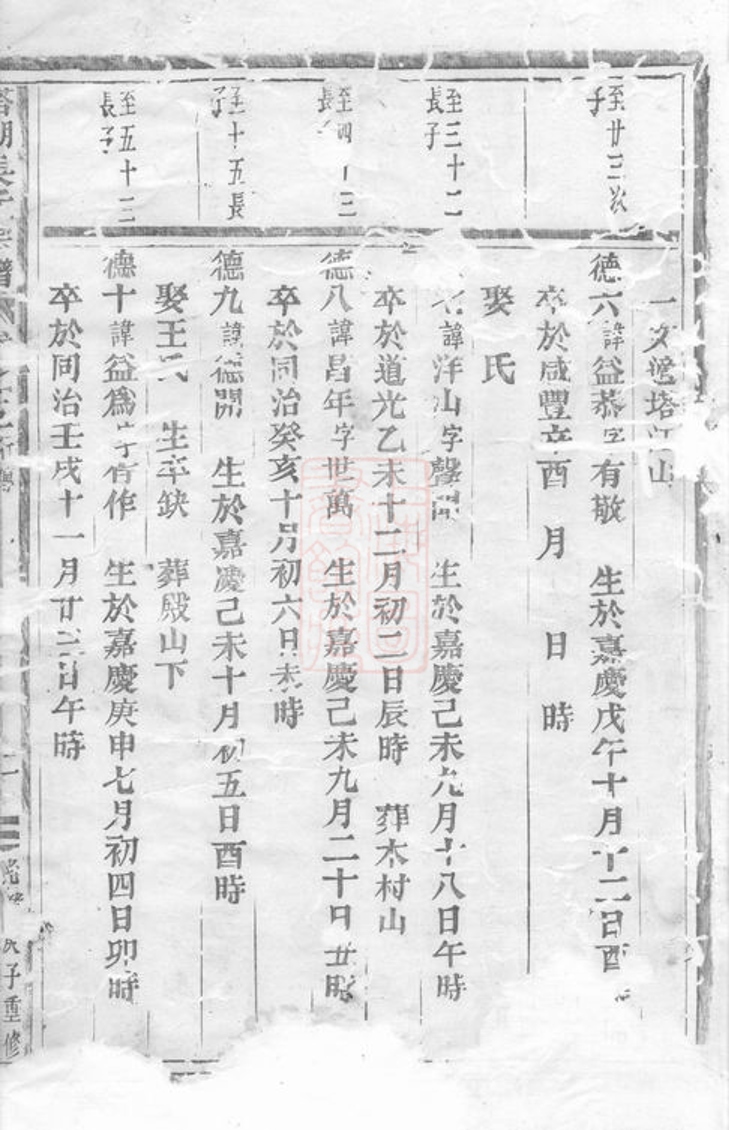 至廿三次
子
至三十二
長子
至四十三
長
至十五長
子
至五十三
長子
塔江山
德六諱益恭字有敬　生於嘉慶戊午十月十二日酉
卒於咸豐辛酉　月　　日　時
娶　氏
諱洋山字馨　生於嘉慶己未九月十八日午時
卒於道光乙未十二月初二日辰時　葬木村山
德八諱昌年字世萬　生於嘉慶己未九月二十日丑時
卒於同治癸亥十月初六日未時
德九諱德開　生於嘉慶己未十月初五日酉時
娶王氏　生卒缺　葬殿山下
德十諱益為字作　生於嘉慶庚申七月初四日卯時
卒於同治壬戌十一月廿三日午時
宗譜
光緒
子重修